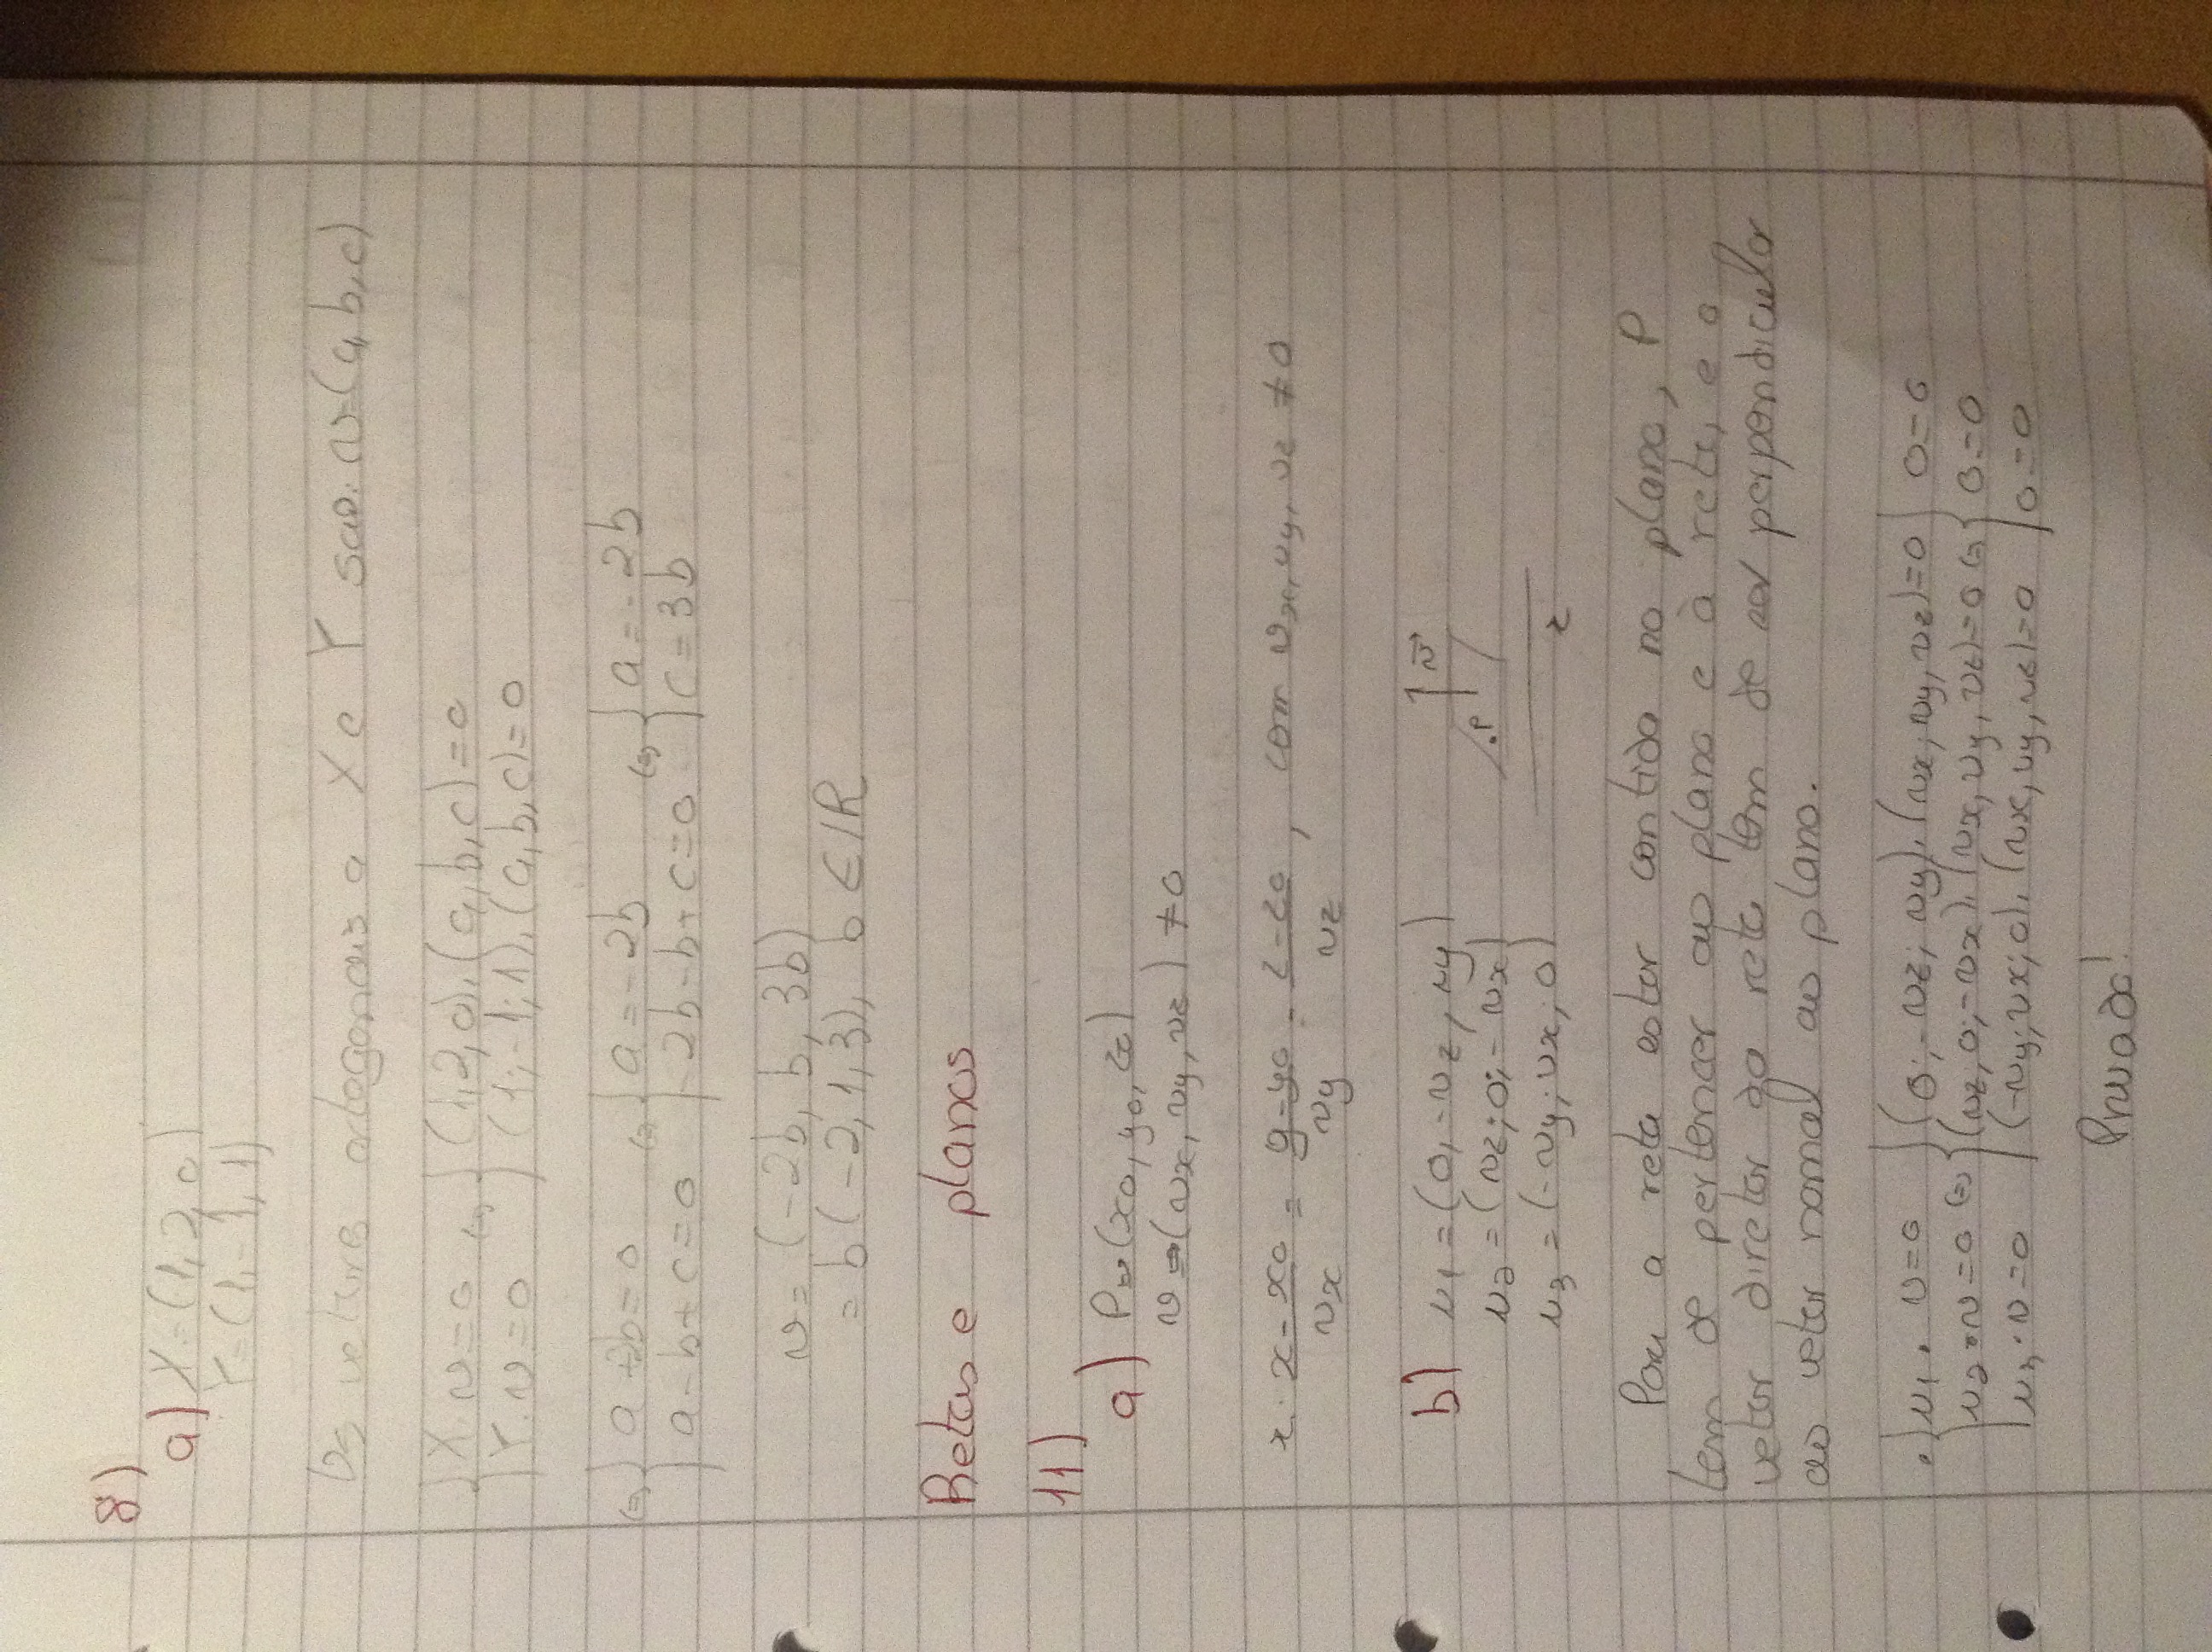 8)
a) X=(1,2,0)
Y=(1,-1,1)
Os vetores ortogonais a X e Y são: v=(a,b,c)
{ X.v=0 (=) { (1,2,0).(a,b,c)=0
{ Y.v=0 { (1;-1;1).(a,b,c)=0
(=) { a+2b=0 (=) { a=-2b (=) { a=-2b
{ a-b+c=0 { -2b-b+c=0 { c=3b
v= (-2b, b, 3b)
= b(-2,1,3), b ∈ IR
Retas e planos
11)
a) P=(x0, y0, z0)
v=(vx, vy, vz) ≠0
r: x-x0/vx = y-y0/vy = z-z0/vz, com vx, vy, vz ≠0
b) u1=(0,-vz, vy)
u2=(vz;0;-vx)
u3=(-vy;vx;0)
v
.P
r
Para a reta estar contida no plano, P
tem de pertencer ao plano e à reta, e o
vetor diretor da reta tem de ser perpendicular
ao vetor normal ao plano.
. { u1. v=0 { (0;-vz; vy).(vx; vy, vz)=0 { 0=0
{ u2.v=0 (=) { (vz,0,-vx).(vx, vy, vz)=0 (=) { 0=0
{ u3.v=0 { (-vy;vx;0).(vx, vy, vz)=0 { 0=0
Provado!